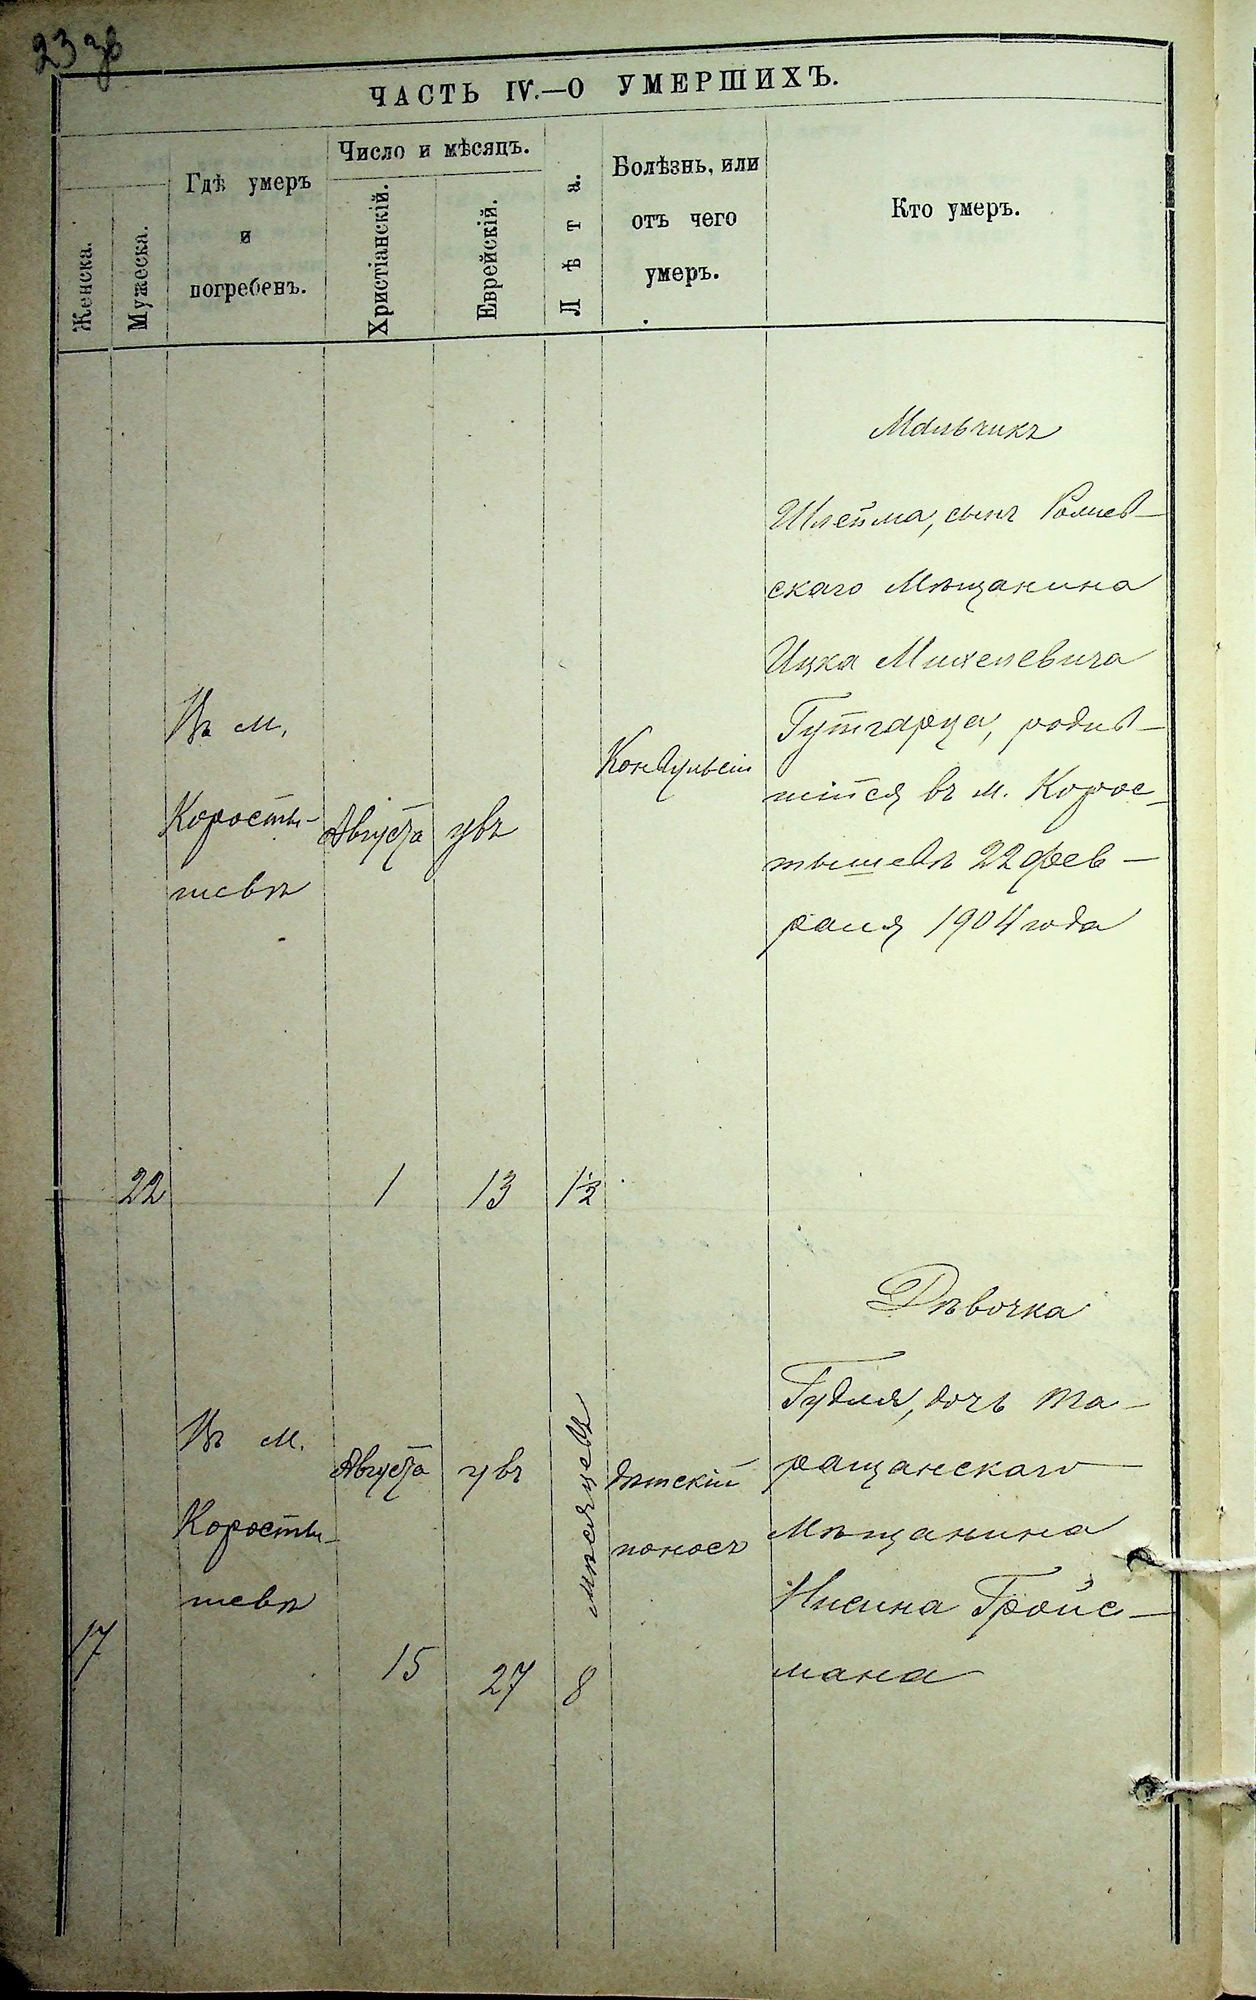 23 зв
ЧАСТЬ IV.—О УМЕРШИХЪ.
Женска.
Мужеска.
Гдѣ умеръ
и
погребенъ.
Число и мѣсяцъ.
Христіанскій.
Еврейскій.
Лѣта.
Болѣзнь, или
отъ чего
умеръ.
Кто умеръ.
22
Въ м.
Коросты-
шевѣ
Августа
1
увъ
13
1½
Конвульсіи
Мальчикъ
Шлейма, сынъ
скаго Мѣщанина
Ицка Михелевича
Гутгарца, родив-
шійся въ м. Корос-
тышевѣ 22 фев-
раля 1904 года
17
Въ м.
Коросты-
шевѣ
Августа
15
увъ
27
мѣсяцевъ
8
дѣтскій
поносъ
Дѣвочка
Гудля, дочь та-
ращанскаго
Мѣщанина
Нисина Гройс-
мана